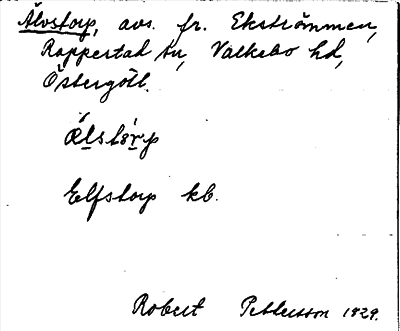 Älvstorp, avs. fr. Ekströmmen,
Rappestad sn, Valkebo hd,
Östergötl.
Elfstorp kb.
Robert Pettersson 1929.